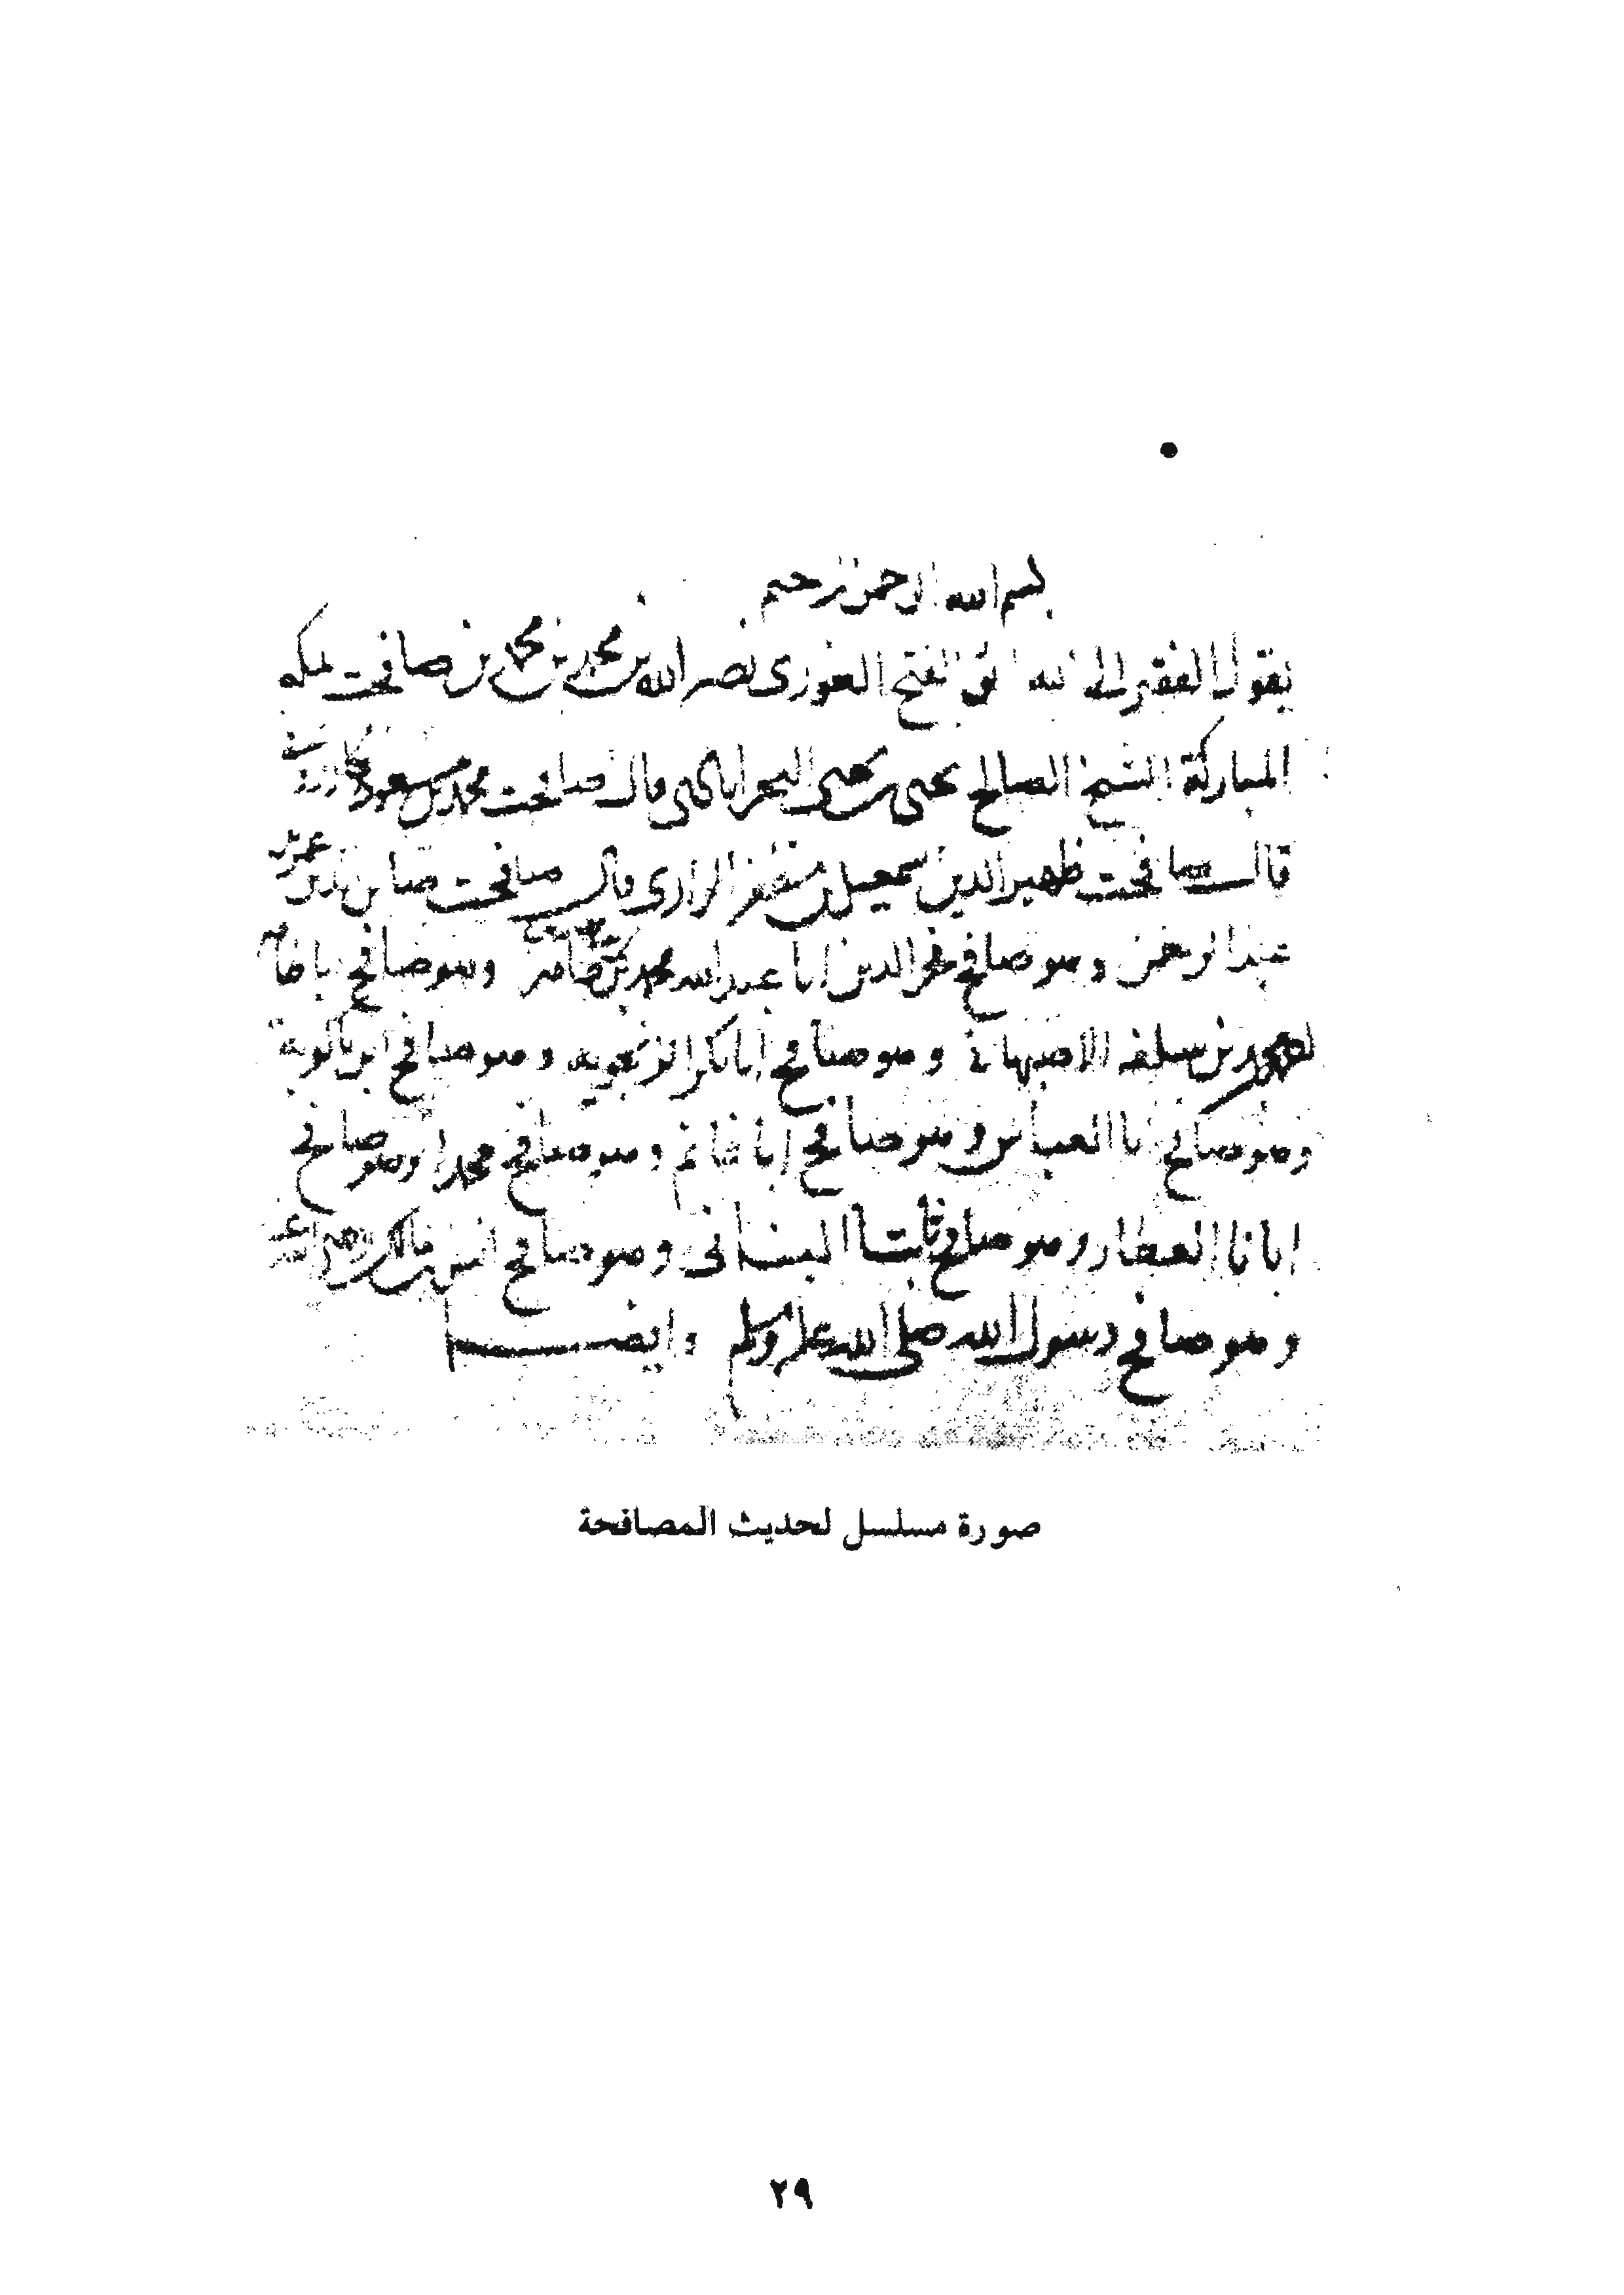 بسم الله الرحمن الرحيم
يقول الفقير الى الله ابو الفتح الغورى نصر الله بن محمد بن محمد بن صافحت بمكه
المباركة الشيخ الصالح يحيى بن يحيى قال صافحت محمد بن مسعود
قال صافحت ظهير الدين اسمعيل بن مظفر الرازى قال صافحت
عبد الرحمن وهو صافح فخر الدين ابا عبد الله محمد بن وهو صافح
احمد بن سلفه الاصبهانى وهو صافح ابابكر وهو صافح ابن بالوية
وهو صافح ابا العباس وهو صافح ابا غانم وهو صافح محمدا وهو صافح
ابانا العطار وهو صافح ثابتا البنانى وهو صافح انس بن مالك رضى الله عنه
وهو صافح رسول الله صلى الله عليه وسلم وايضا
صورة مسلسل لحديث المصافحة
٢٩